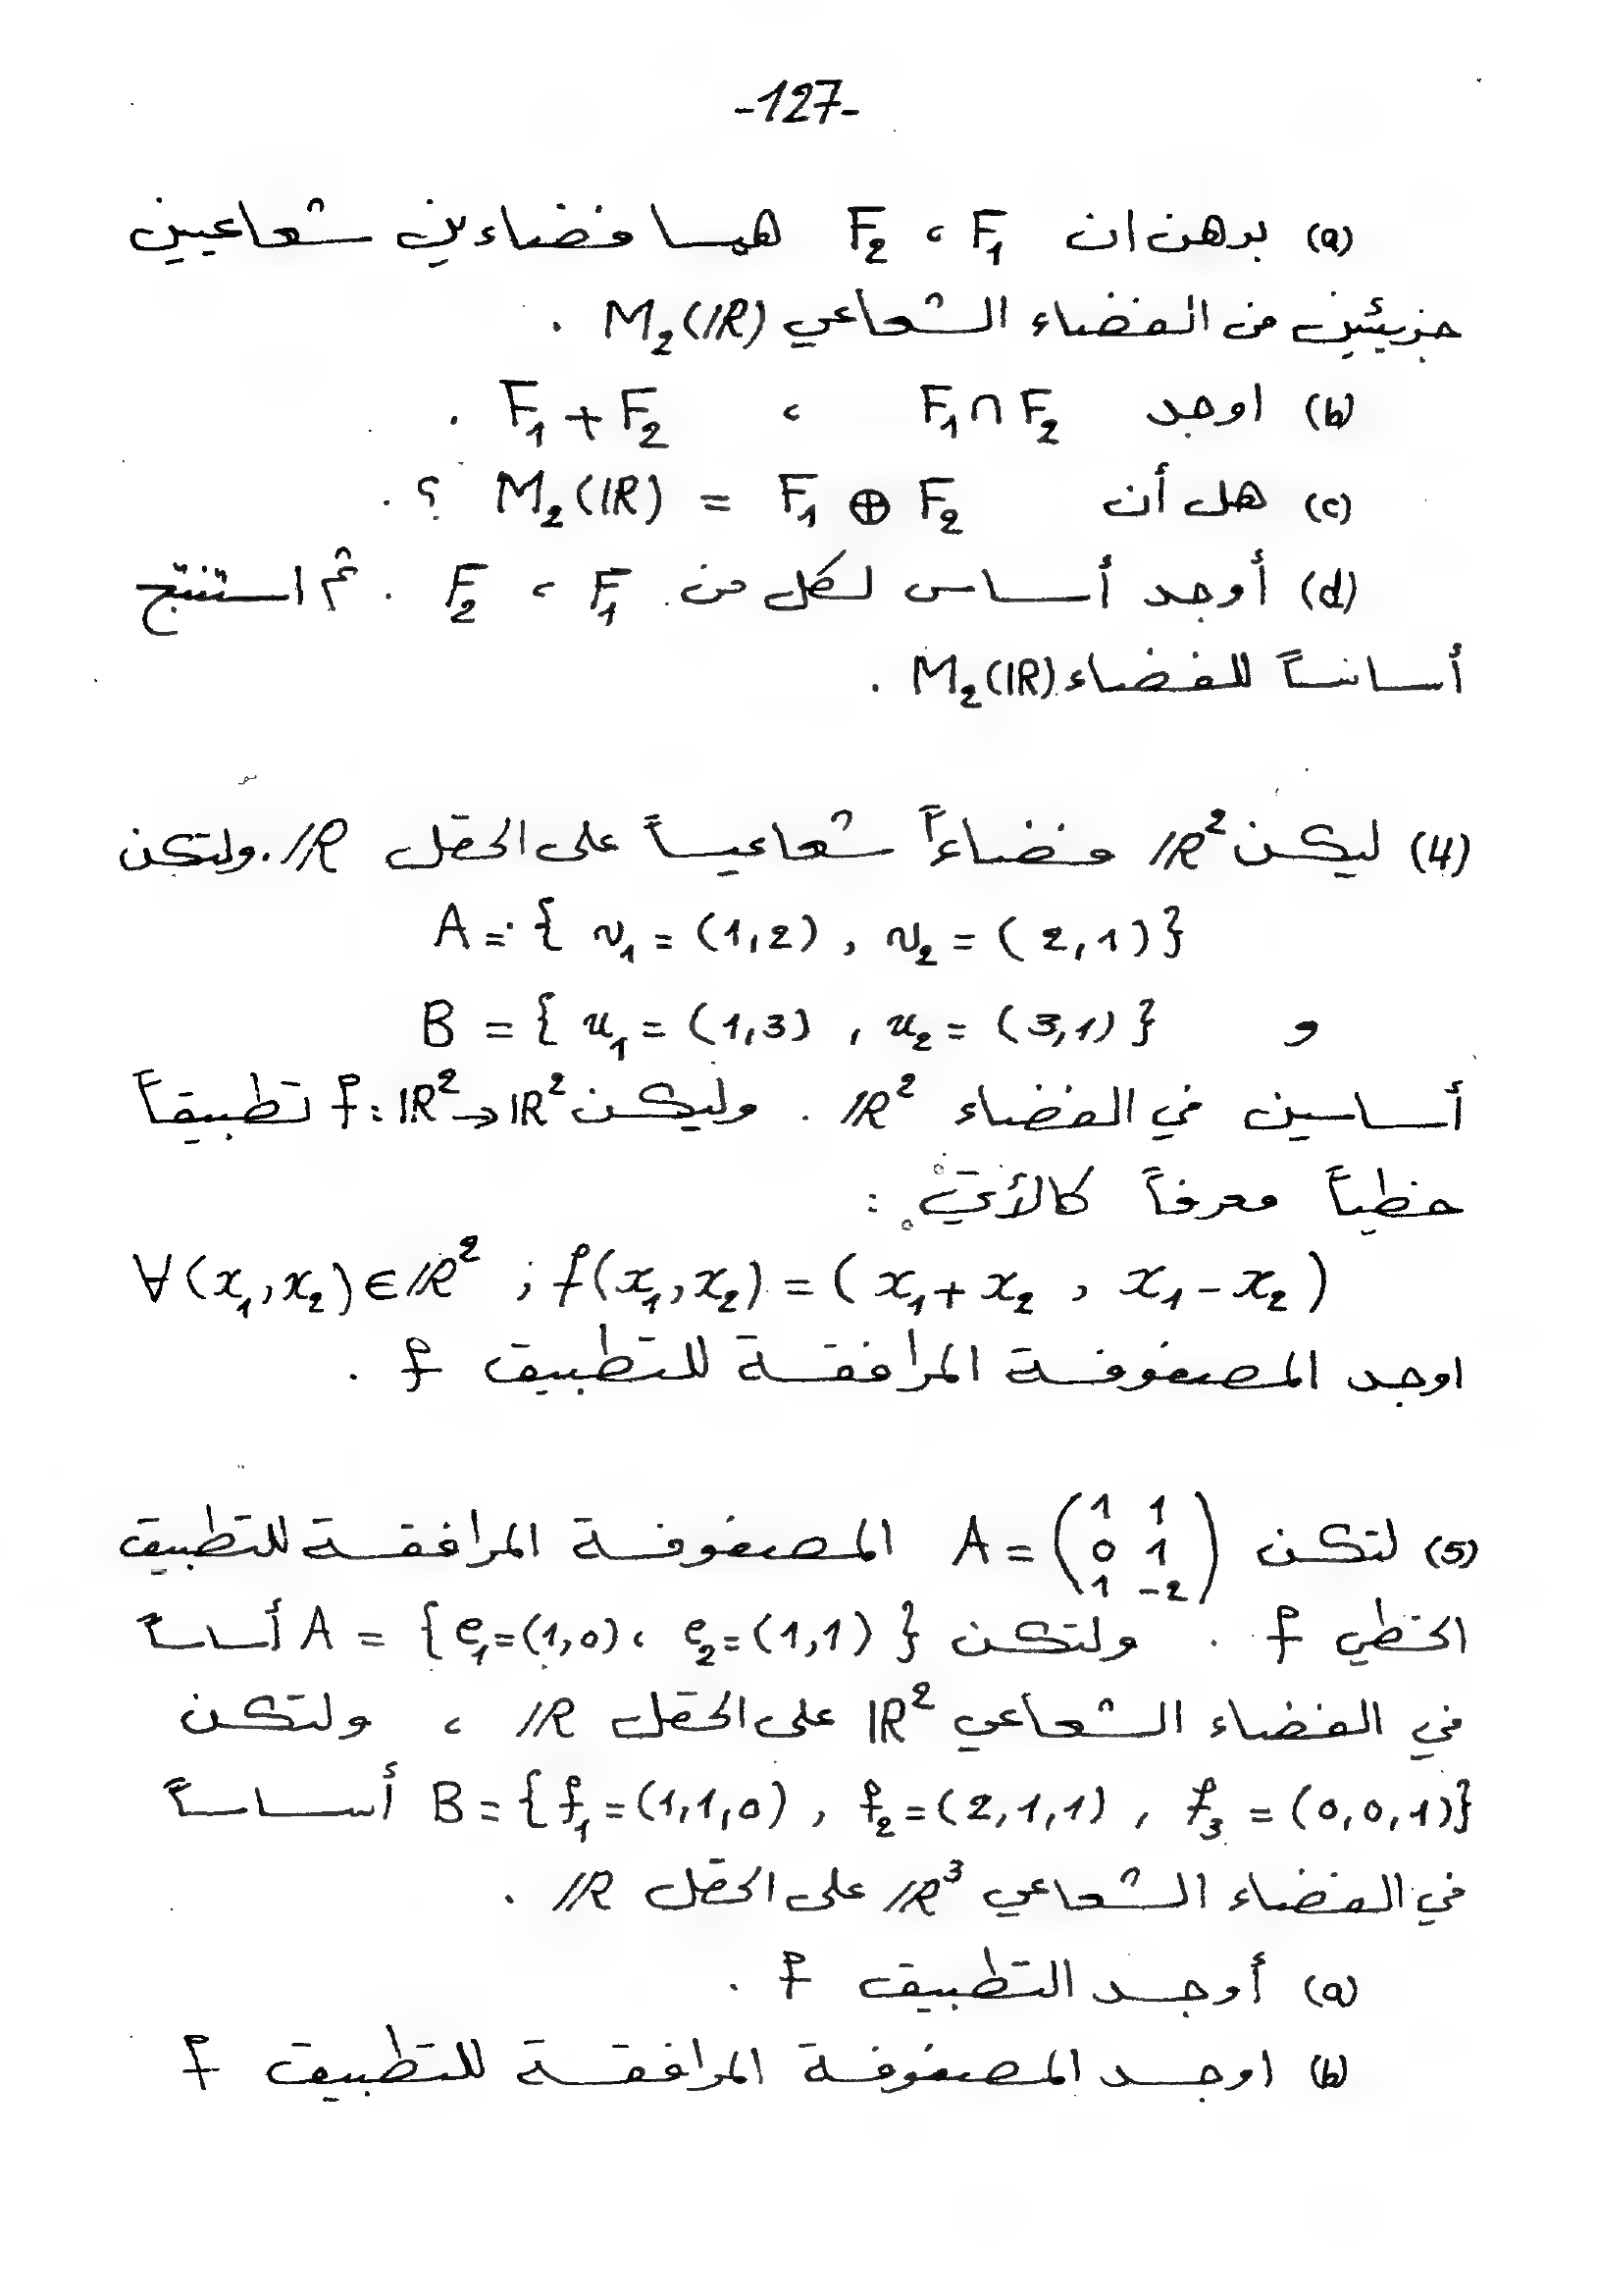 -127-
(a) برهن ان F₁ ، F₂ هما فضاءين شعاعيين
جزيئين من الفضاء الشعاعي M₂(ℝ) .
(b) اوجد F₁∩F₂ ، F₁+F₂ .
(c) هل أن M₂(ℝ) = F₁ ⊕ F₂ ؟ .
(d) أوجد أساس لكل من F₁ ، F₂ . ثم استنتج
أساساً للفضاء M₂(ℝ) .
(4) ليكن ℝ² فضاءاً شعاعياً على الحقل ℝ . ولتكن
A = { v₁ = (1,2) , v₂ = (2,1) }
و B = { u₁ = (1,3) , u₂ = (3,1) }
أساسين في الفضاء ℝ² . وليكن f: ℝ² → ℝ² تطبيقاً
خطياً معرفاً كالأتي :
∀(x₁,x₂) ∈ ℝ² ; f(x₁,x₂) = (x₁+x₂ , x₁-x₂)
اوجد المصفوفة المرافقة للتطبيق f .
(5) لتكن A = (1 1 / 0 1 / 1 -2) المصفوفة المرافقة للتطبيق
الخطي f . ولتكن A = {e₁=(1,0) ، e₂=(1,1)} أساساً
في الفضاء الشعاعي ℝ² على الحقل ℝ ، ولتكن
B = {f₁=(1,1,0) , f₂=(2,1,1) , f₃=(0,0,1)} أساساً
في الفضاء الشعاعي ℝ³ على الحقل ℝ .
(a) أوجد التطبيق f .
(b) اوجد المصفوفة المرافقة للتطبيق f